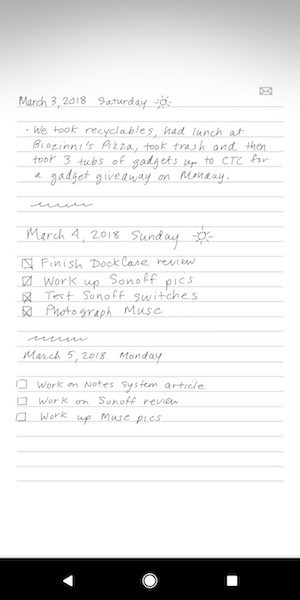 March 3, 2018 Saturday
· We took recyclables, had lunch at
Biozinni's Pizza, took trash and then
took 3 tubs of gadgets up to CTC for
a gadget giveaway on Monday.
March 4, 2018 Sunday
Finish DockCase review
Work up Sonoff pics
Test Sonoff switches
Photograph Muse
March 5, 2018 Monday
Work on Notes System article
Work on Sonoff review
Work up Muse pics